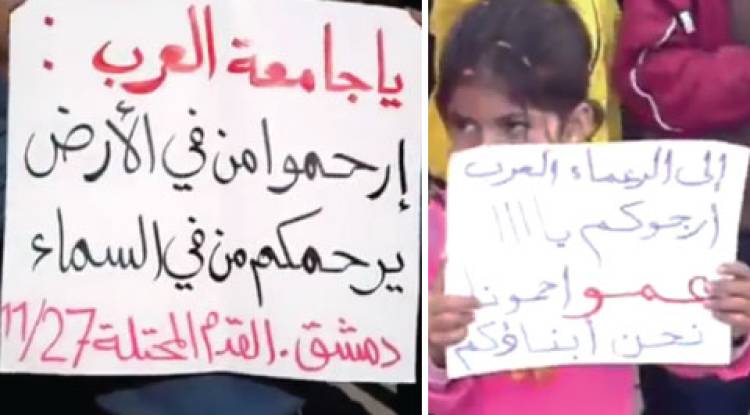 يا جامعة العرب :
إرحموا من في الأرض
يرحمكم من في السماء
دمشق . القدم المحتلة 11/27
إلى الزعماء العرب
أرجوكم يا ااا
عمو احمونا
نحن أبناؤكم